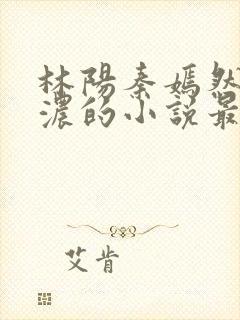 林陽秦嫣然
濃的小說最
艾肯